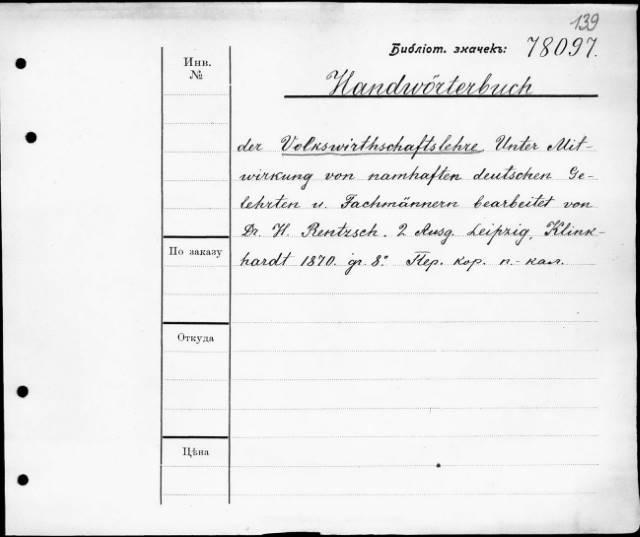 139
Библіот. значекъ: 78097.
Инв.
№
Handwörterbuch
der Volkswirthschaftslehre. Unter Mit-
wirkung von namhaften deutschen Ge-
lehrten u. Fachmännern bearbeitet von
Dr. H. Rentzsch. 2 Ausg. Leipzig, Klink-
По заказу
hardt 1870. gr. 8º Пер. кор. п.-кал.
Откуда
Цѣна